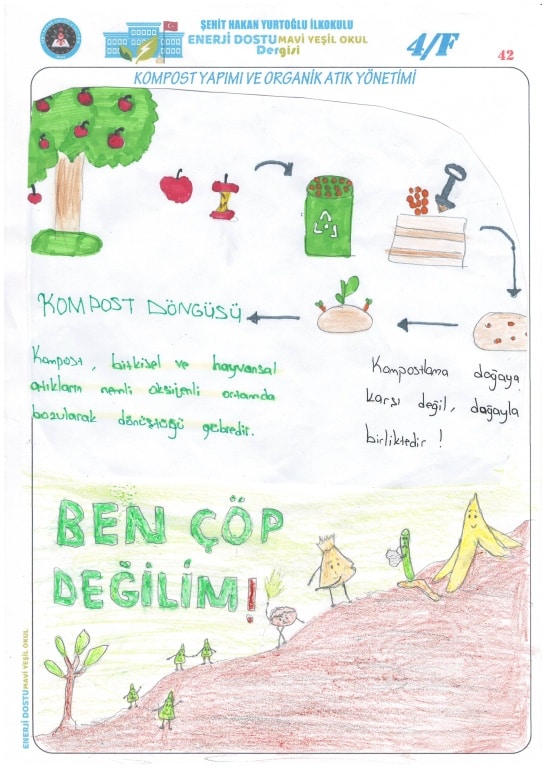 ŞEHİT HAKAN YURTOĞLU İLKOKULU
ENERJİ DOSTU MAVİ YEŞİL OKUL
Dergisi
4/F
42
KOMPOST YAPIMI VE ORGANİK ATIK YÖNETİMİ
KOMPOST DÖNGÜSÜ
Kompost, bitkisel ve hayvansal
atıkların nemli oksijenli ortamda
bozularak dönüştüğü gübredir.
Kompostlama doğaya
karşı değil, doğayla
birliktedir !
BEN ÇÖP
DEĞİLİM!
ENERJİ DOSTU MAVİ YEŞİL OKUL